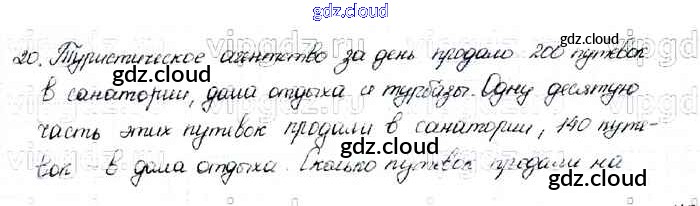 gdz.cloud
20. Туристическое агентство за день продало 200 путёвок
gdz.cloud
в санатории, дома отдыха и турбазы. Одну десятую
gdz.cloud
часть этих путёвок продали в санатории, 140 путё-
gdz.cloud
вок - в дома отдыха. Сколько путёвок продали на
gdz.cloud